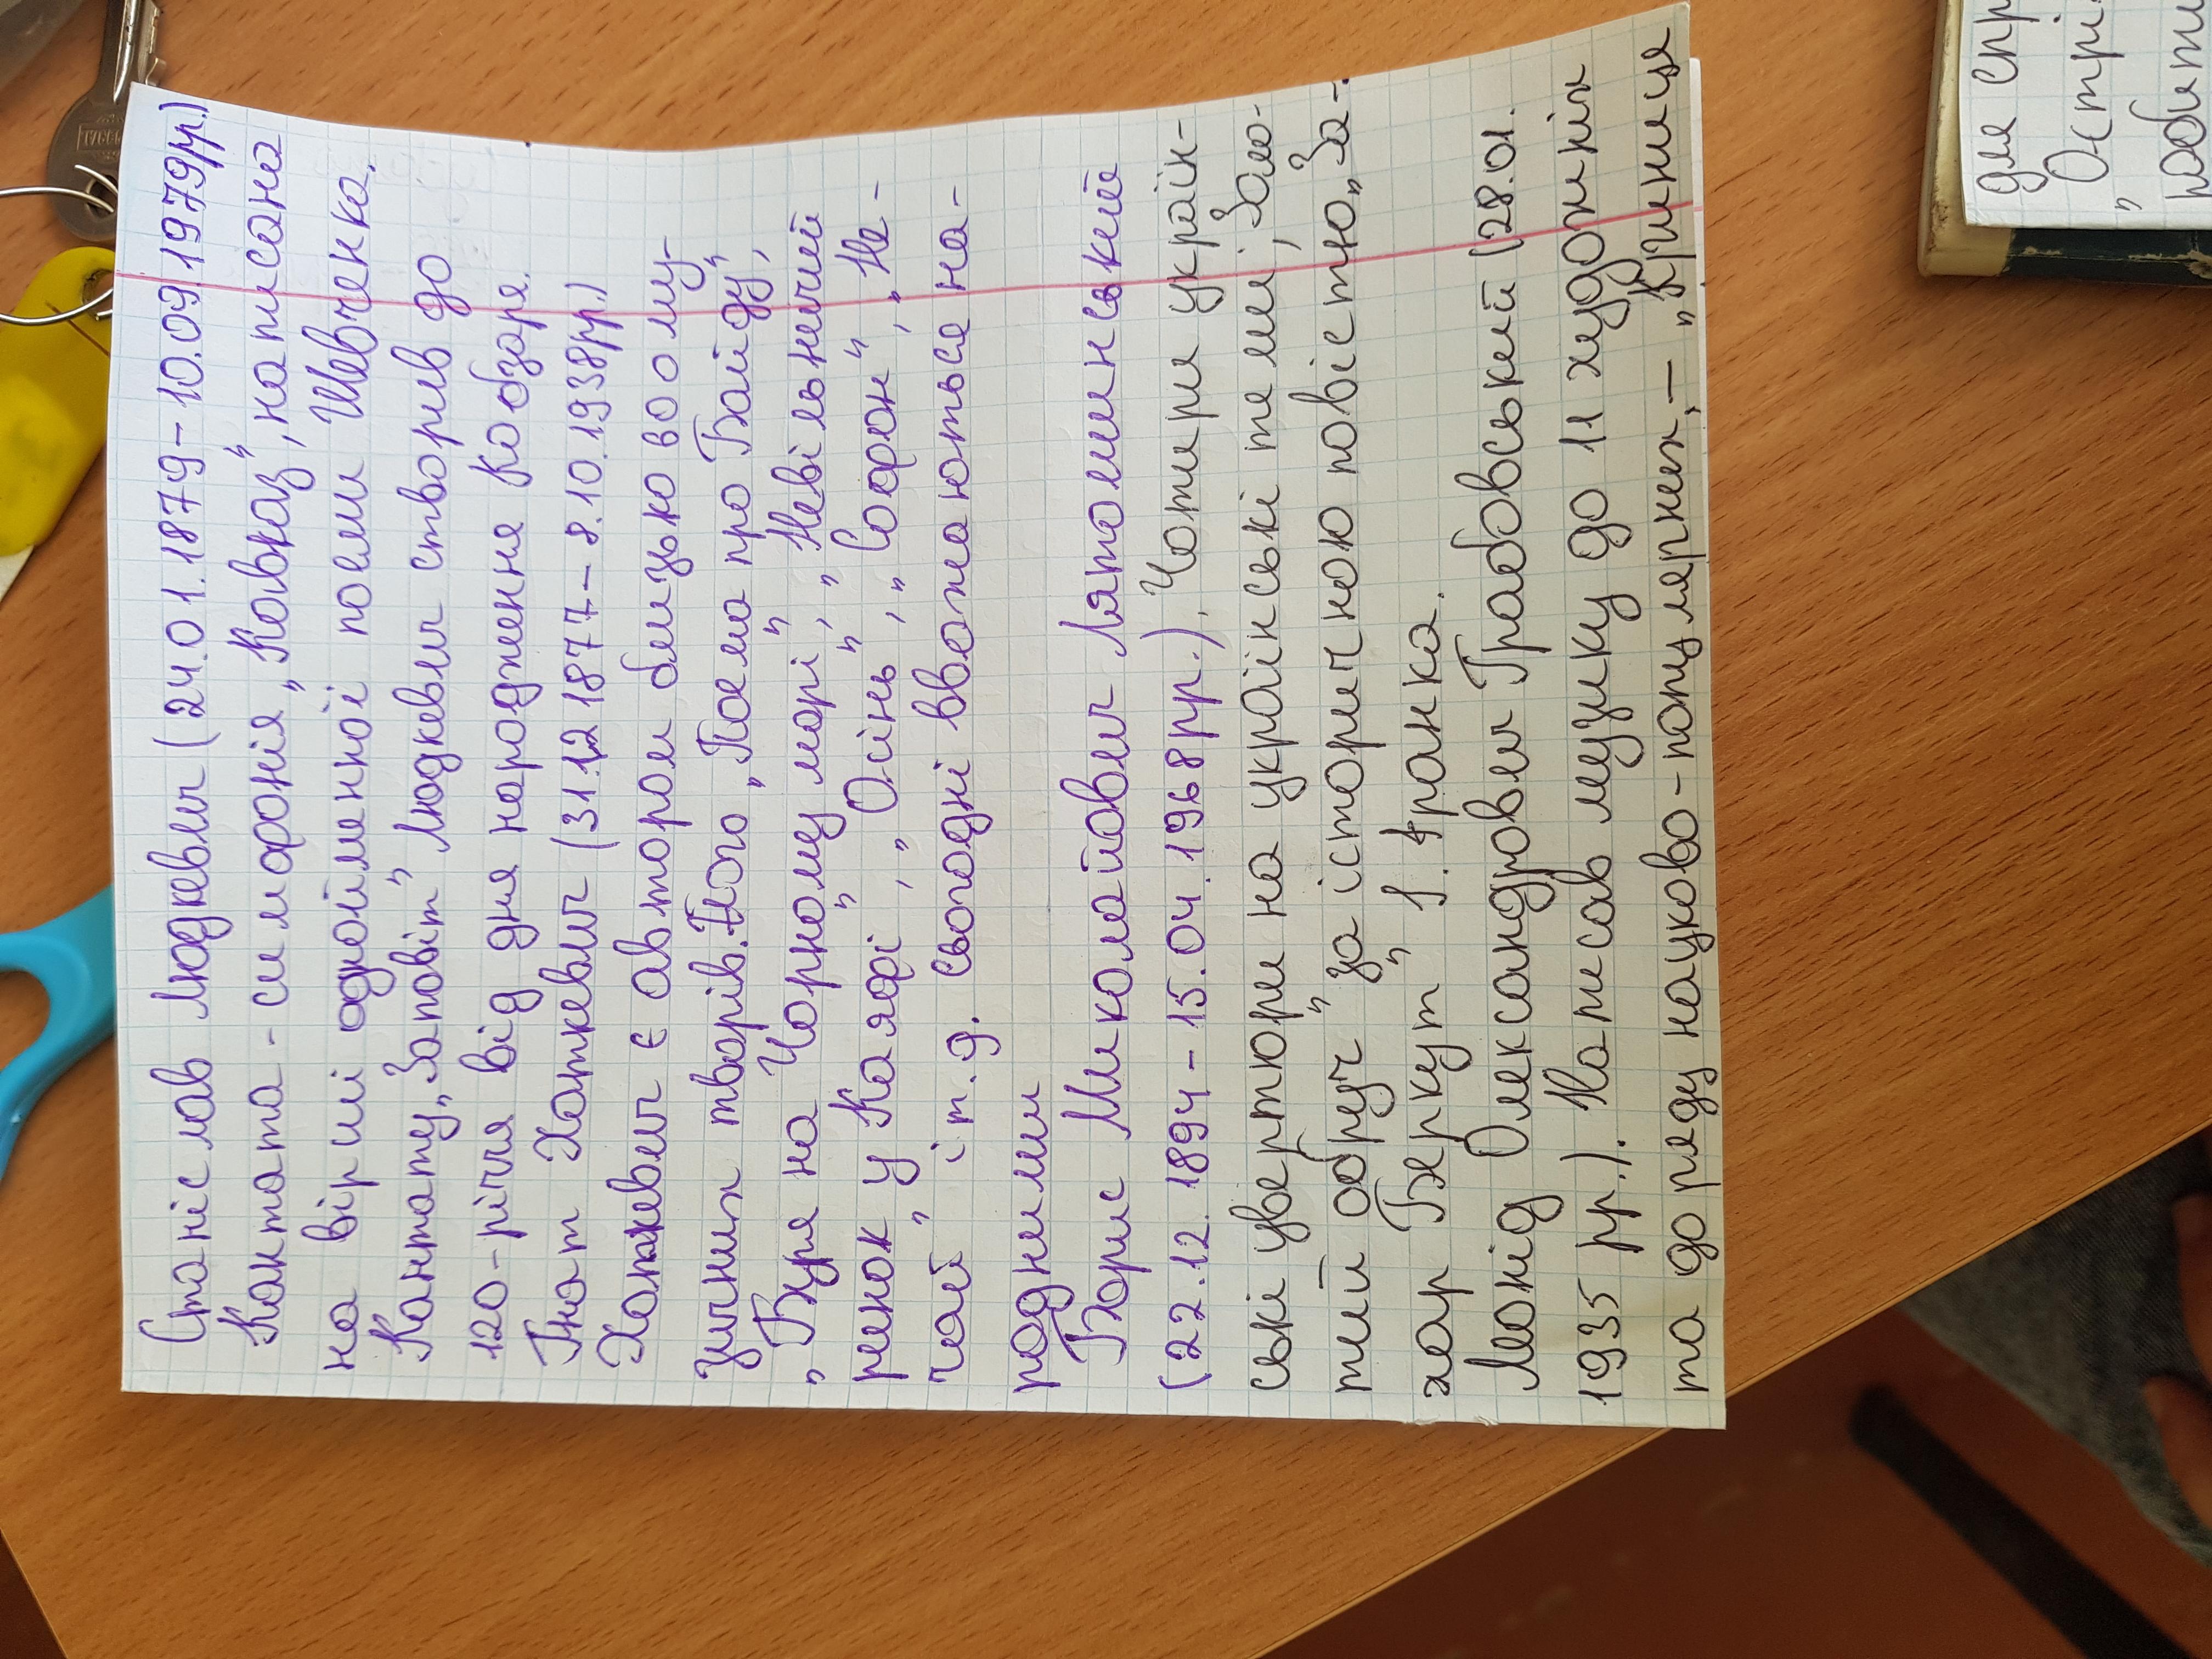 Станіслав Людкевич (24.01.1879-10.09.1979рр.)
Кантата-симфонія „Кавказ", написана
на вірші однойменної поеми Шевченка.
Кантату „Заповіт" Людкевич створив до
120-річчя від дня народження Кобзаря.
Гнат Хоткевич (31.12.1877-8.10.1938рр.)
Хоткевич є автором близько 80 му-
зичних творів. Його „Поема про Байду",
„Буря на Чорному морі", „Невільничий
ринок у Кафі", „Осінь", „Софрон", „Не-
чай" і т.д. сьогодні вважаються на-
родними
Борис Миколайович Лятошинський
(22.12.1894-15.04.1968рр.). Чотири україн-
ські увертюри на українські теми; „Золо-
тий обруч" за історичною повістю „За-
хар Беркут" І. Франка.
Леонід Олександрович Грабовський (28.01.
1935 рр.). Написав музику до 11 художніх
та до ряду науково-популярних, - „Криниця
для спр
„Острі
робити